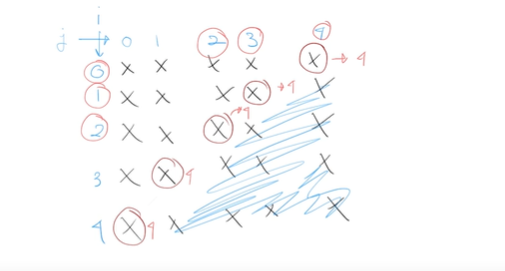 i
j 0 1 2 3 4
0 X X X X X → 4
1 X X X X → 4 X
2 X X X → 4 X X
3 X X 4 X X X
4 X 4 X X X X